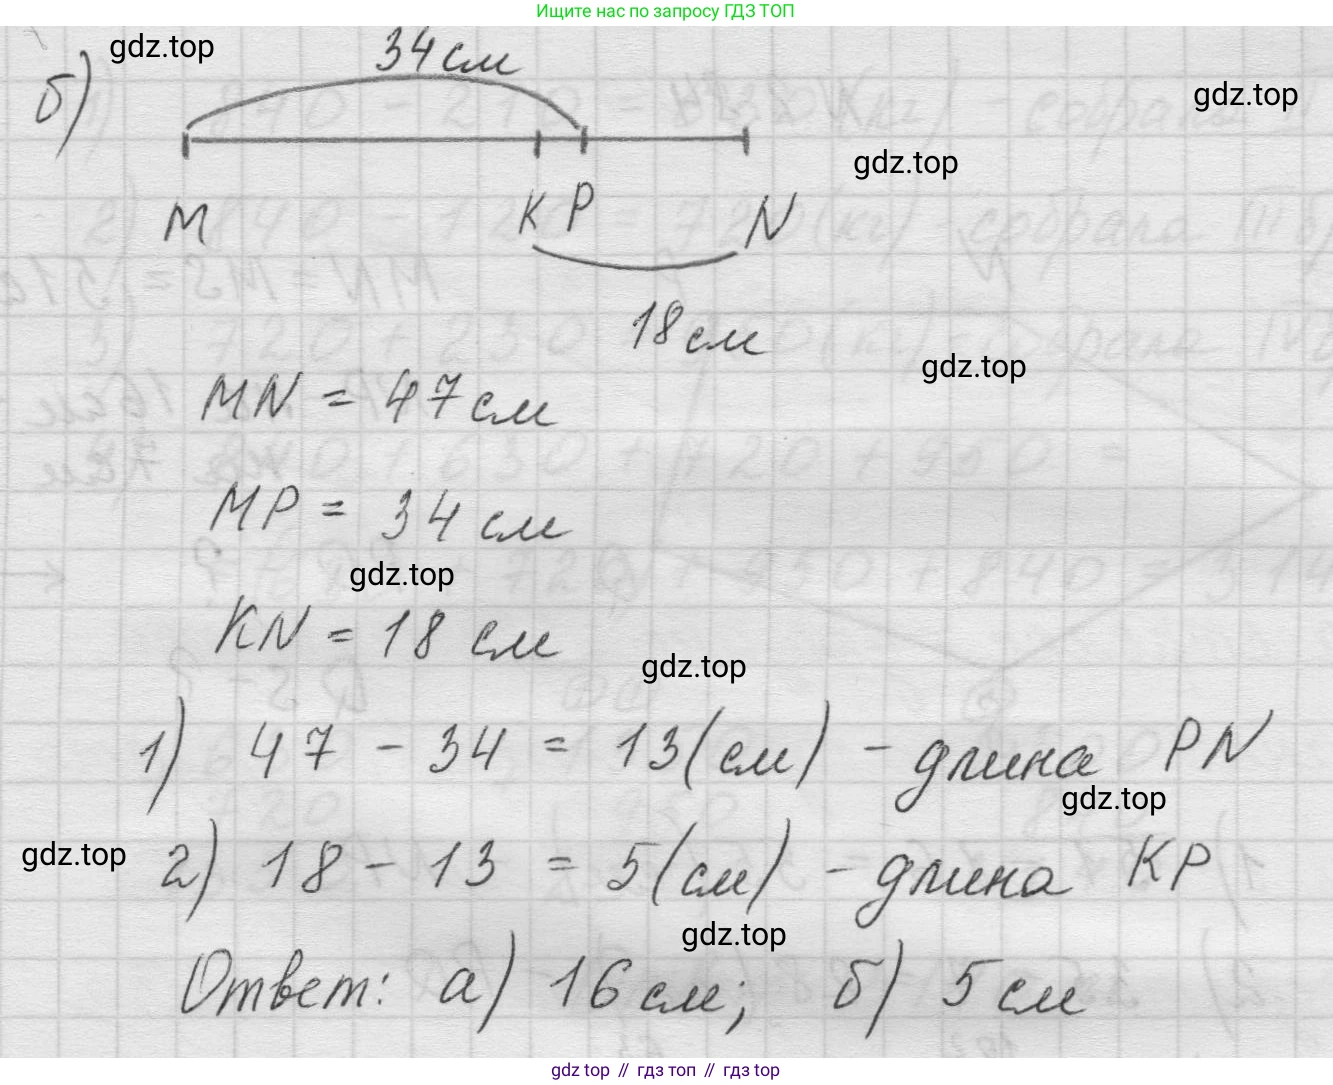 Ищите нас по запросу ГДЗ ТОП
gdz.top
34 см
б)
gdz.top
gdz.top
M K P N
18 см
gdz.top
MN = 47 см
MP = 34 см
gdz.top
KN = 18 см
gdz.top
1) 47 - 34 = 13 (см) - длина PN
gdz.top
gdz.top
2) 18 - 13 = 5 (см) - длина KP
gdz.top
Ответ: а) 16 см; б) 5 см
gdz top // гдз топ // gdz top